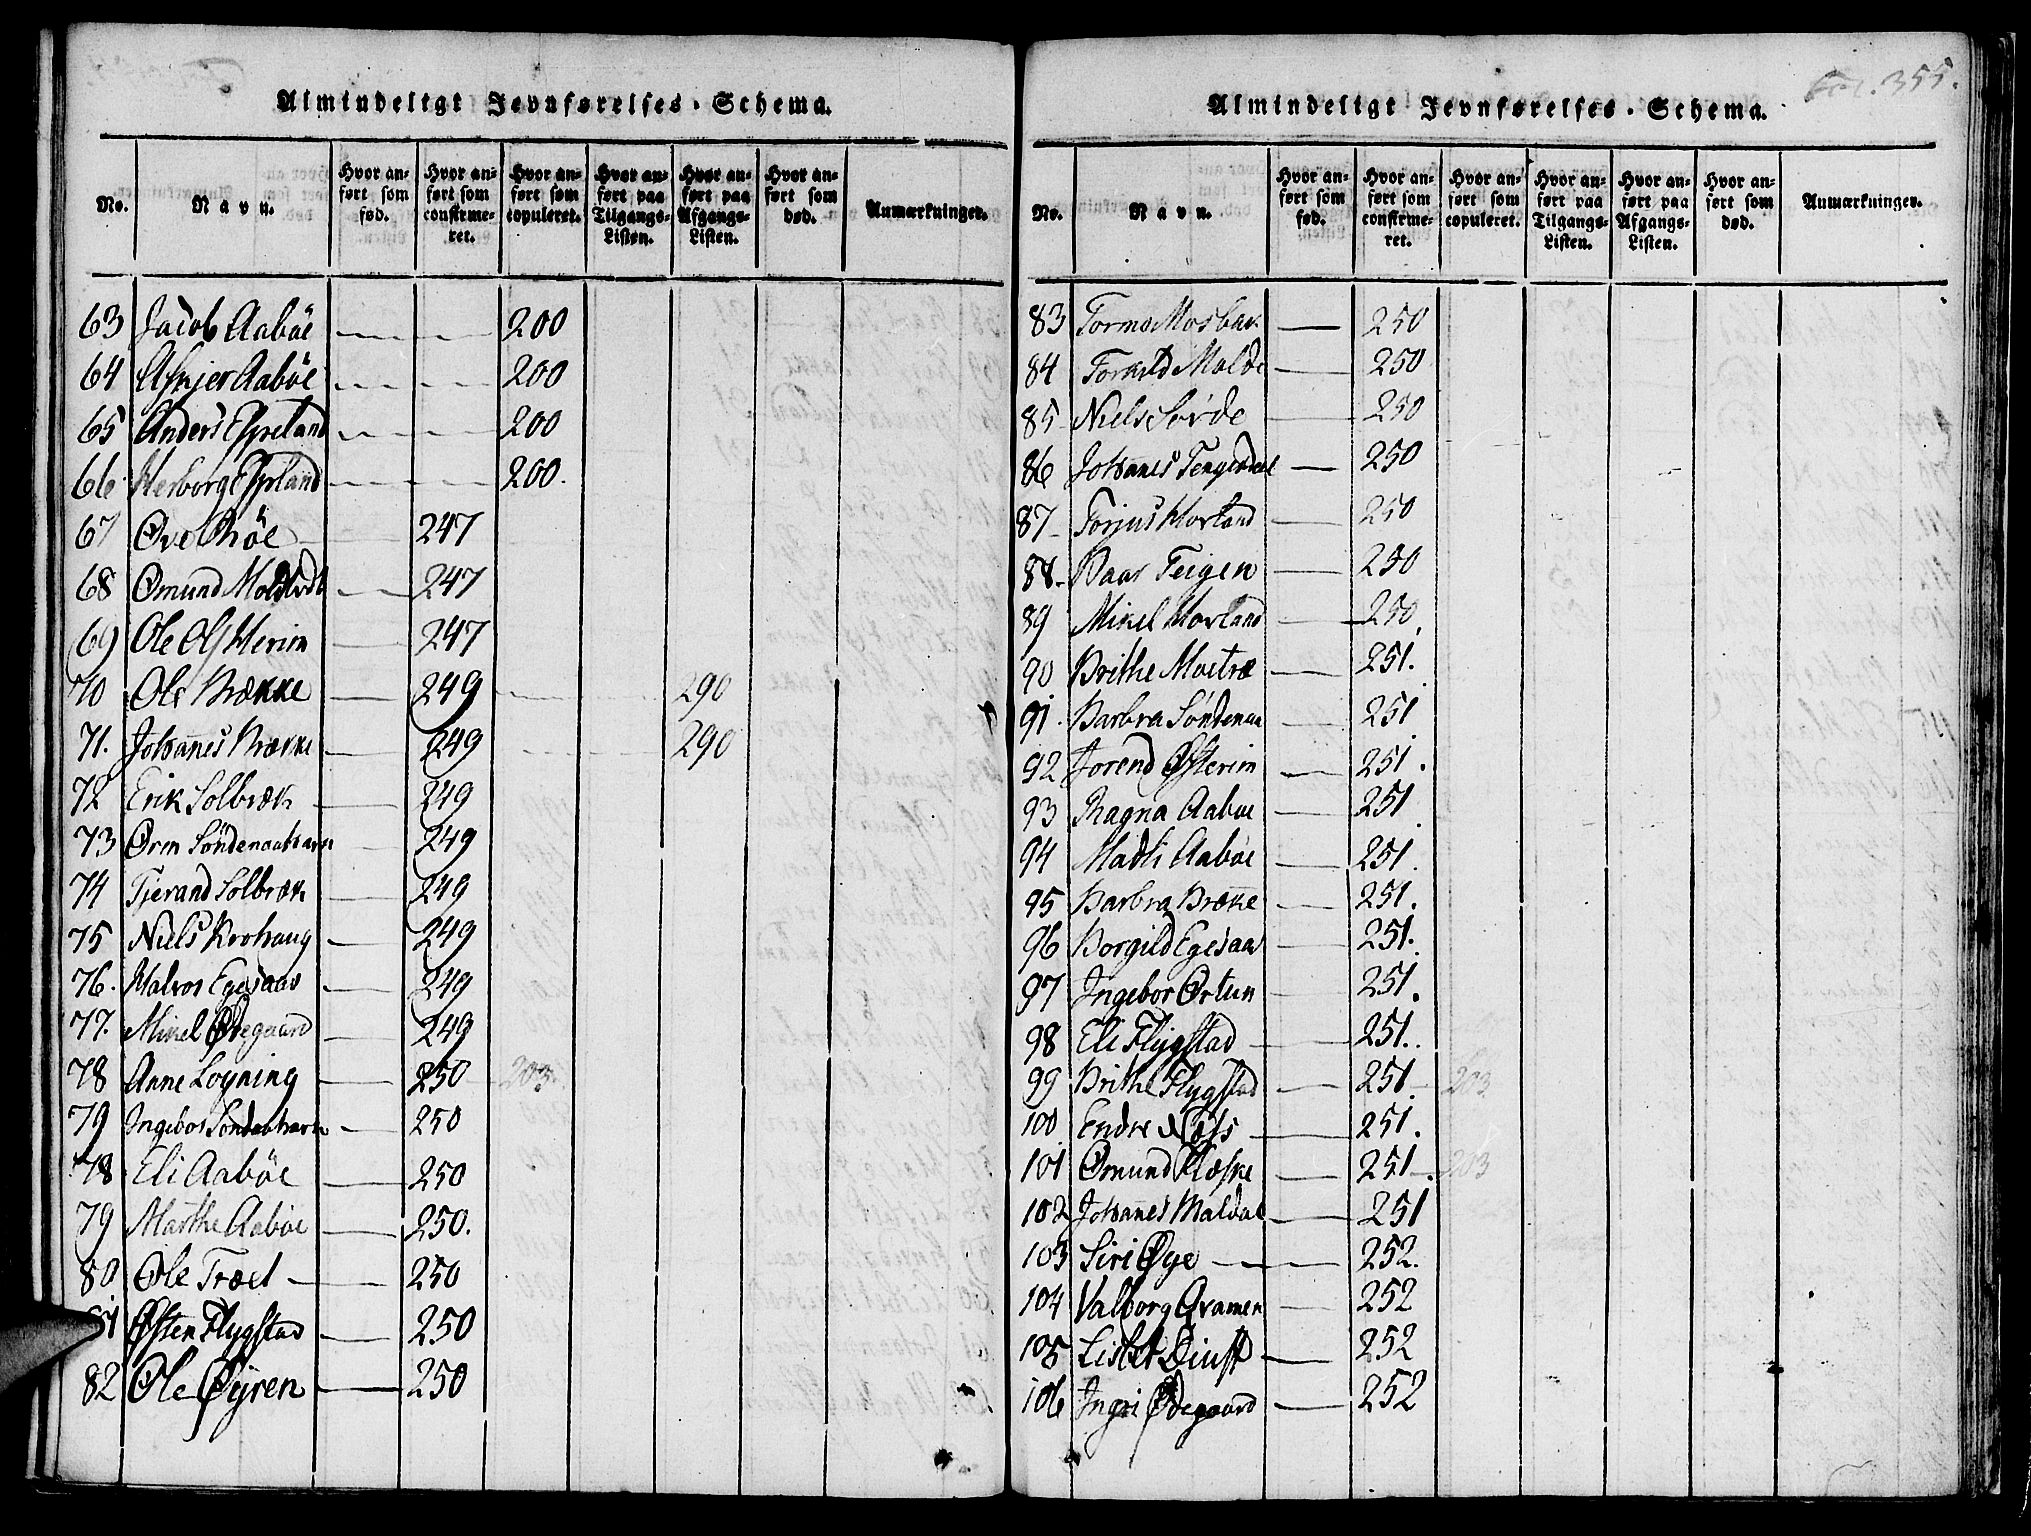 Almindeligt Jevnførelses-Schema.
No. Navn. Hvor anført som fød. Hvor anført som confirmeret. Hvor anført som copuleret. Hvor anført paa Tilgangs-Listen. Hvor anført paa Afgangs-Listen. Hvor anført som død. Anmærkninger.
63 Jacob Aabøe 200
64 Asbjer Aabøe 200
65 Anders Espeland 200
66 Herborg Espland 200.
67 Ove Røe 247
68 Ømund 247
69 Ole Ols Herim 247
70 Ole Brække 249 290
71. Johannes Brække 249 290
72 Erik Solbræk 249
73 Orm 249
74 Tjerand Solbræk 249
75 Niels Krohaug 249
76. Halvor Egesaas 249
77. Mikel Ødegaard 249
78 Anne Loyning 250 203.
79 Ingebor 250
78 Eli Aabøe 250
79 Marthe Aabøe 250.
80 Ole Træet 250
81 Østen Flygstad 250
82 Ole Øyren 250
Fol. 355.
Almindeligt Jevnførelses-Schema.
No. Navn. Hvor anført som fød. Hvor anført som confirmeret. Hvor anført som copuleret. Hvor anført paa Tilgangs-Listen. Hvor anført paa Afgangs-Listen. Hvor anført som død. Anmærkninger.
83 Tormo Mosbæk 250
84 Torkild Molde 250
85 Niels Sørde 250
86 Johannes Tengesdal 250
87 Torjus Hovland 250
88. Baar Teigen 250
89 Mikel Hovland 250
90 Brithe Moetræ 251.
91. Barbra Søndenaa 251
92 Jorend Østerim 251.
93 Ragna Aaboe 251
94 Madli Aabøe 251.
95 Barbra Brække 251.
96 Borgild Egesaas 251.
97 Ingebor Ortun 251.
98 Eli Flygstad 251.
99 Brithe Flygstad 251 203
100 Endre 251.
101 Ømund Flæske 251 203
102 Johannes Maldal 251
103 Siri Øye 252.
104 Valborg Qvamen 252
105 Lisbet 252
106 Ingri Ødegaard 252